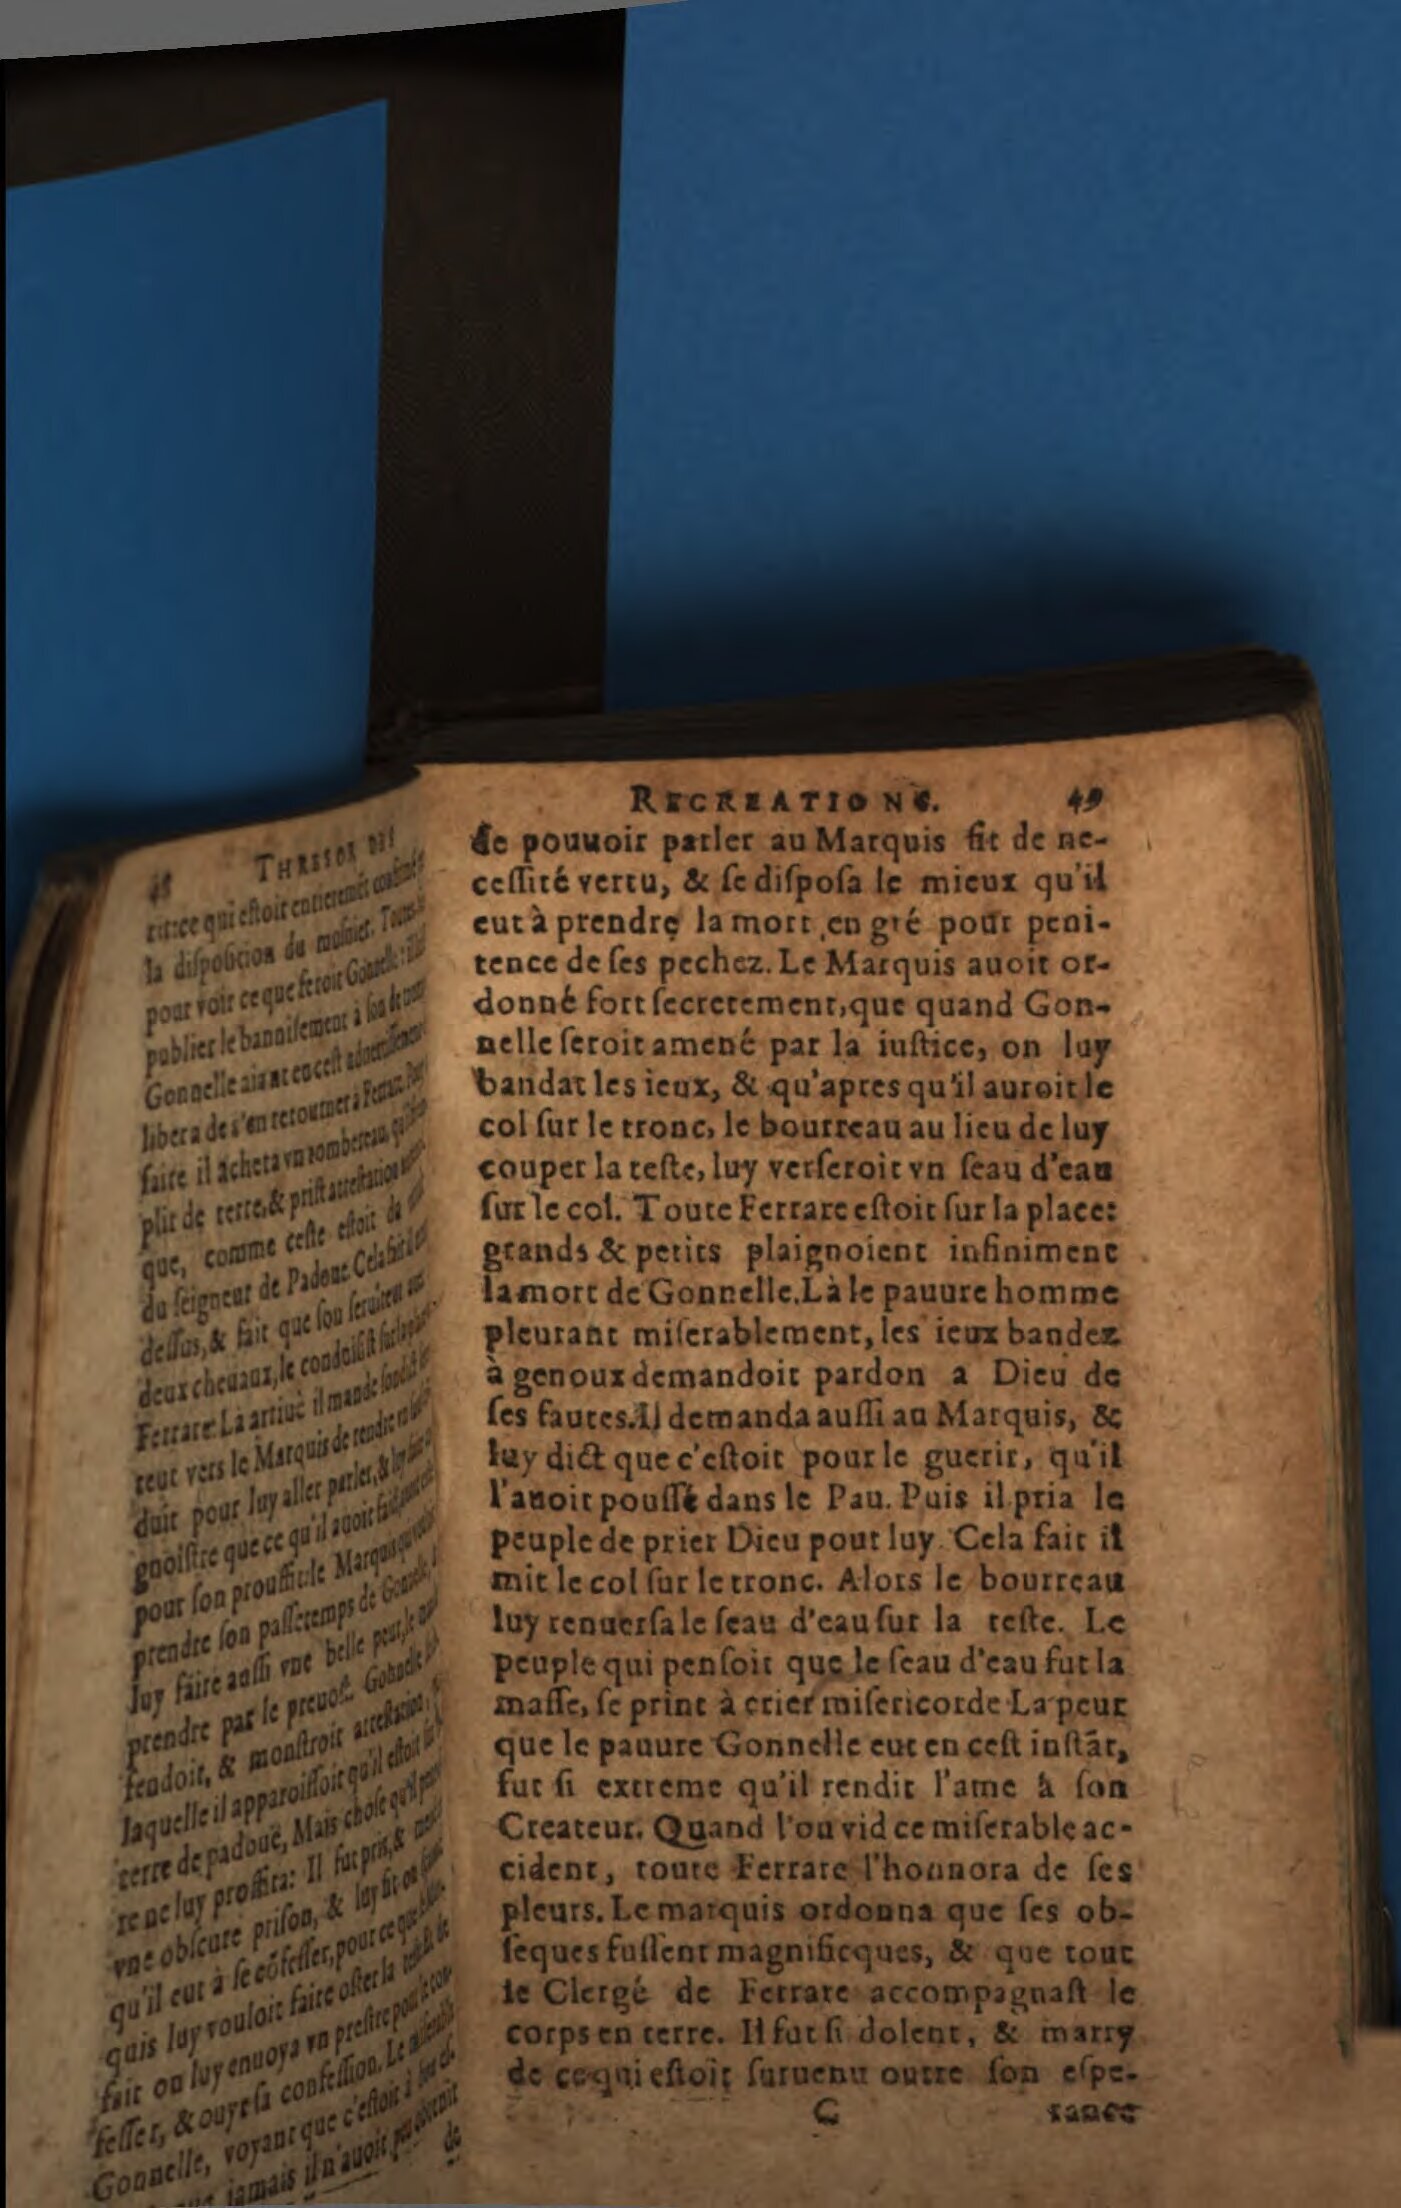 48 THRESOR DES
la disposition du mosnier.
pour voir ce que feroit Gonnelle:
publier le bannissement à son de
Gonnelle aiant en cest advertissement
libera de s'en retourner à Ferrare.
faire il acheta vn tombereau,
plir de terre, & prist attestation
que, comme ceste estoit de
du seigneur de Padoue. Cela fait
dessus, & fait que son seruiteur
deux cheuaux, le conduisist
Ferrare. La arriué il mande
teur vers le Marquis de rendre
duit pour luy aller parler, &
gnoistre que ce qu'il auoit fait
pour son prouffit: le Marquis
prendre son passetemps de
luy faire aussi vne belle peur, le
prendre par le preuost. Gonnelle
fendoit, & monstroit attestation,
laquelle il apparoissoit qu'il estoit
terre de padouë, Mais chose qu'il
re ne luy proffita: Il fut pris, &
vne obscure prison, & luy fit on
qu'il eut à se cōfesser, pour ce que
quis luy vouloit faire oster la
fait on luy enuoya vn prestre pour le
fesser, & ouyr sa confession. Le
Gonnelle, voyant que c'estoit à
jamais il n'auoit
de
RECREATIONS. 49
de pouuoir parler au Marquis fit de ne-
cessité vertu, & se disposa le mieux qu'il
eut à prendre la mort en gré pour peni-
tence de ses pechez. Le Marquis auoit or-
donné fort secretement, que quand Gon-
nelle seroit amené par la iustice, on luy
bandat les ieux, & qu'apres qu'il auroit le
col sur le tronc, le bourreau au lieu de luy
couper la teste, luy verseroit vn seau d'eau
sur le col. Toute Ferrare estoit sur la place:
grands & petits plaignoient infiniment
la mort de Gonnelle. Là le pauure homme
pleurant miserablement, les ieux bandez
à genoux demandoit pardon a Dieu de
ses fautes. Il demanda aussi au Marquis, &
luy dict que c'estoit pour le guerir, qu'il
l'auoit poussé dans le Pau. Puis il pria le
peuple de prier Dieu pour luy. Cela fait il
mit le col sur le tronc. Alors le bourreau
luy renuersa le seau d'eau sur la teste. Le
peuple qui pensoit que le seau d'eau fut la
masse, se print à crier misericorde La peur
que le pauure Gonnelle eut en cest instāt,
fut si extreme qu'il rendit l'ame à son
Createur. Quand l'on vid ce miserable ac-
cident, toute Ferrare l'honnora de ses
pleurs. Le marquis ordonna que ses ob-
seques fussent magnificques, & que tout
le Clergé de Ferrare accompagnast le
corps en terre. Il fut si dolent, & marry
de ce qui estoit suruenu outre son espe-
C rance